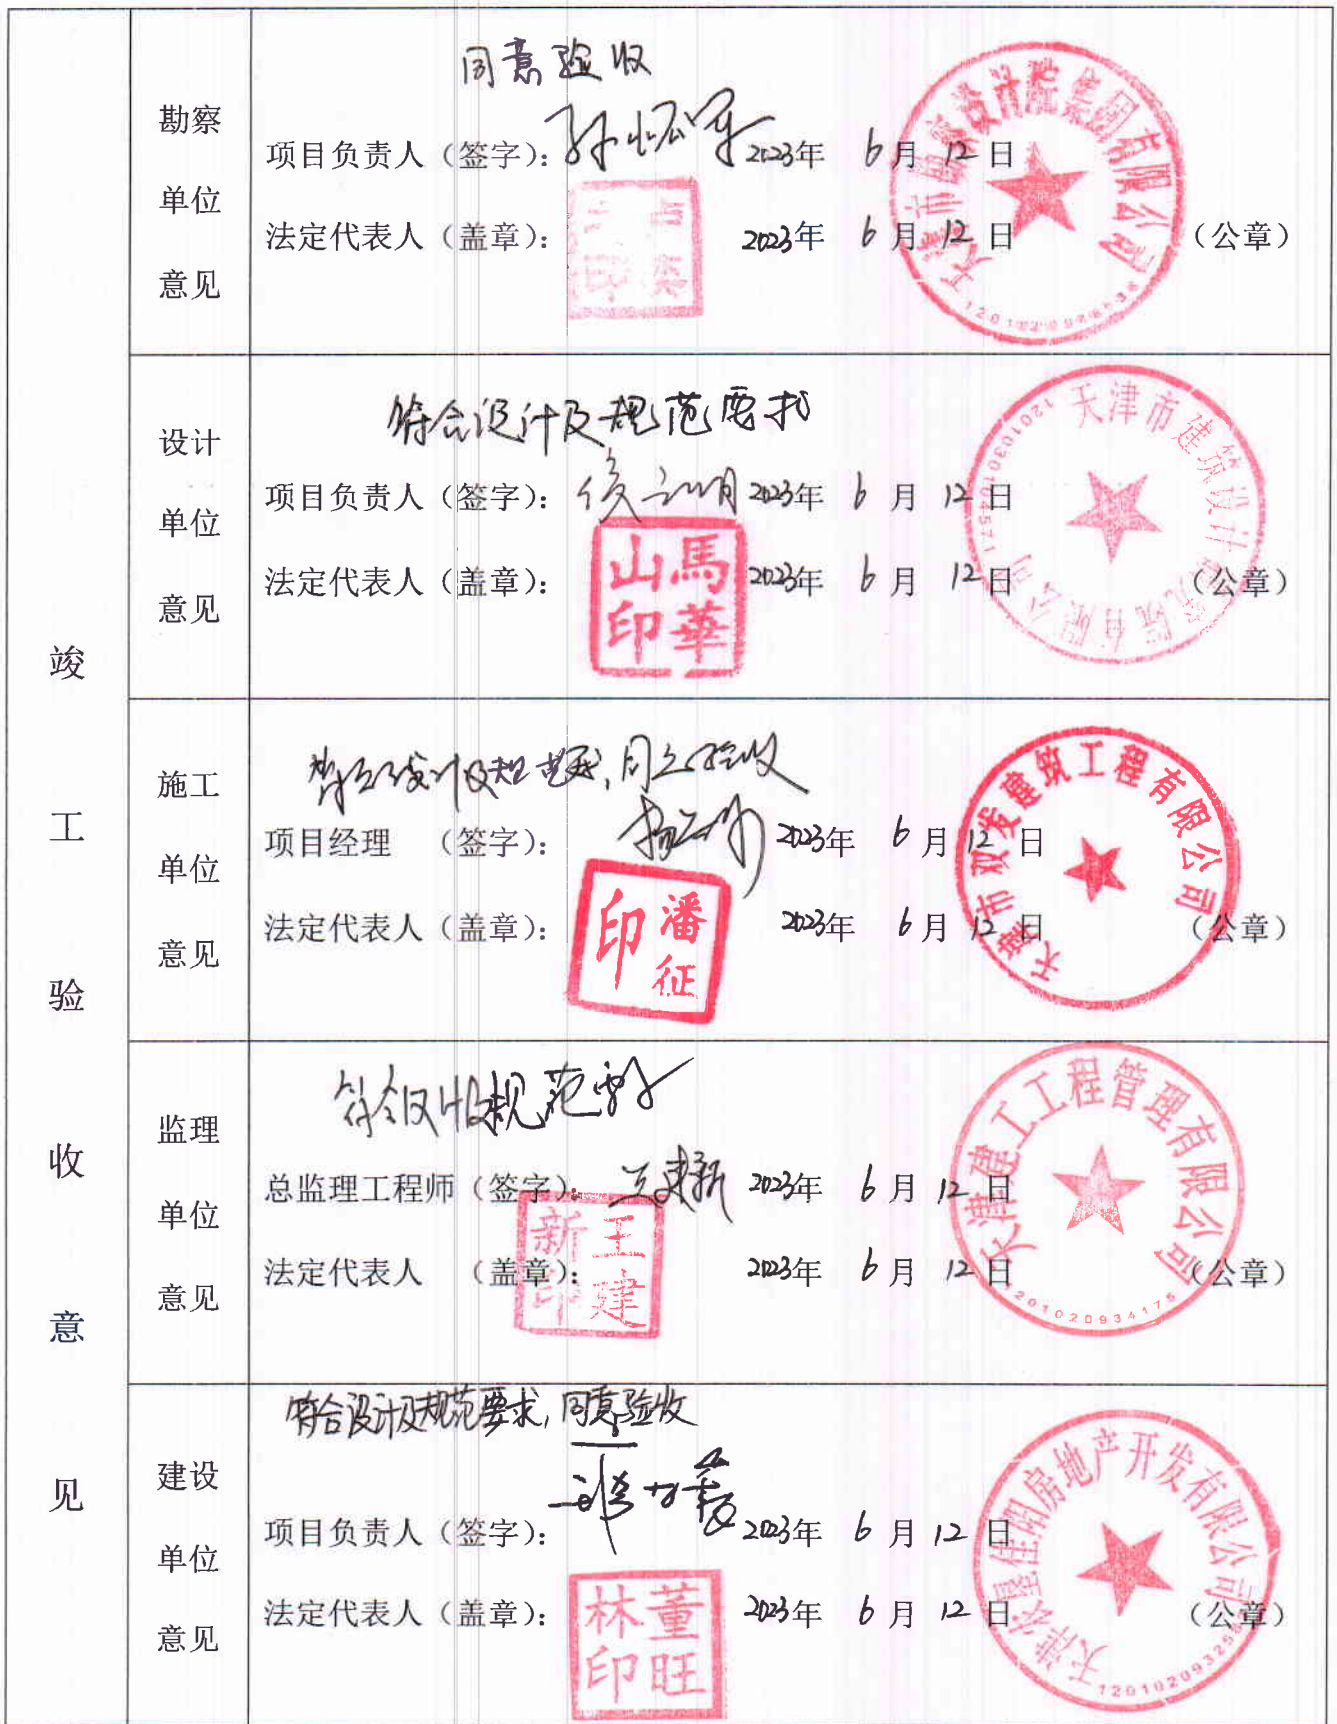 竣工验收意见
勘察单位意见
同意验收
项目负责人（签字）： 2023年 6月 12日
法定代表人（盖章）： 2023年 6月 12日 （公章）
天津市勘察设计院集团有限公司
设计单位意见
符合设计及规范要求
项目负责人（签字）： 2023年 6月 12日
法定代表人（盖章）： 2023年 6月 12日 （公章）
馬華山印
天津市建筑设计研究院有限公司
1201030104571
施工单位意见
符合设计及规范要求，同意验收
项目经理 （签字）： 2023年 6月 12日
法定代表人（盖章）： 2023年 6月 12日 （公章）
潘征印
天津市双发建筑工程有限公司
监理单位意见
符合设计及规范要求
总监理工程师（签字）： 王建新 2023年 6月 12日
法定代表人 （盖章）： 2023年 6月 12日 （公章）
王建新印
天津建工工程管理有限公司
1201020934175
建设单位意见
符合设计及规范要求，同意验收
项目负责人（签字）： 2023年 6月 12日
法定代表人（盖章）： 2023年 6月 12日 （公章）
董旺林印
天津农垦佳阳房地产开发有限公司